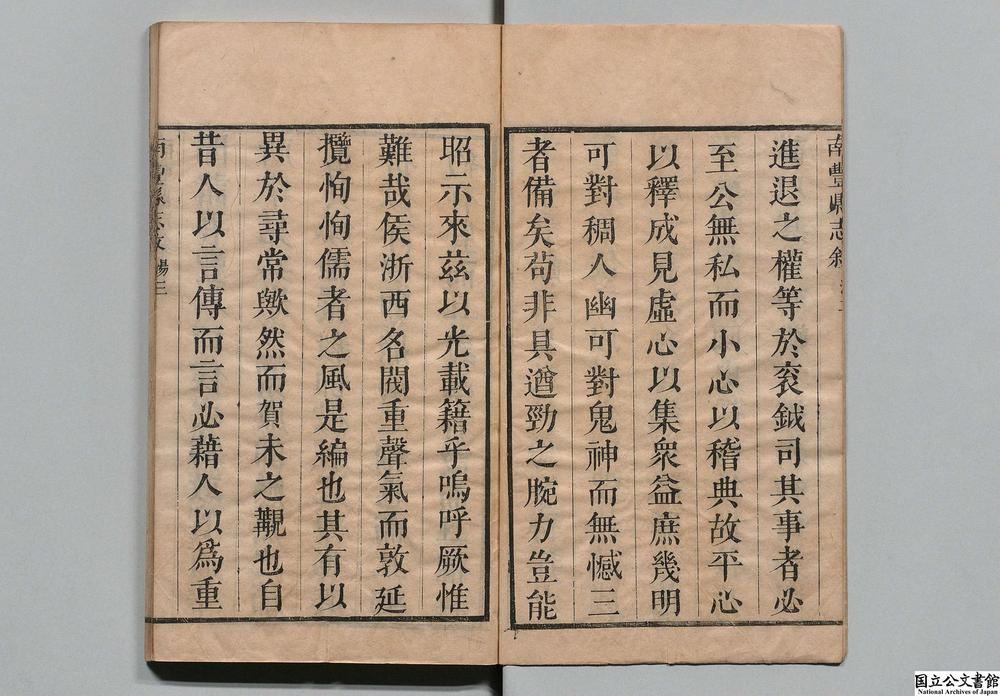 進退之權等於袞鉞司其事者必
至公無私而小心以稽典故平心
以釋成見虛心以集衆益庶幾明
可對稠人幽可對鬼神而無憾三
者備矣苟非具遒勁之腕力豈能
昭示來兹以光載籍乎嗚呼厥惟
難哉侯浙西名閥重聲氣而敦延
攬恂恂儒者之風是編也其有以
異於尋常歟然而賀未之覯也自
昔人以言傳而言必藉人以爲重
南豐縣志敘
南豐縣志敘 楊三
国立公文書館
National Archives of Japan